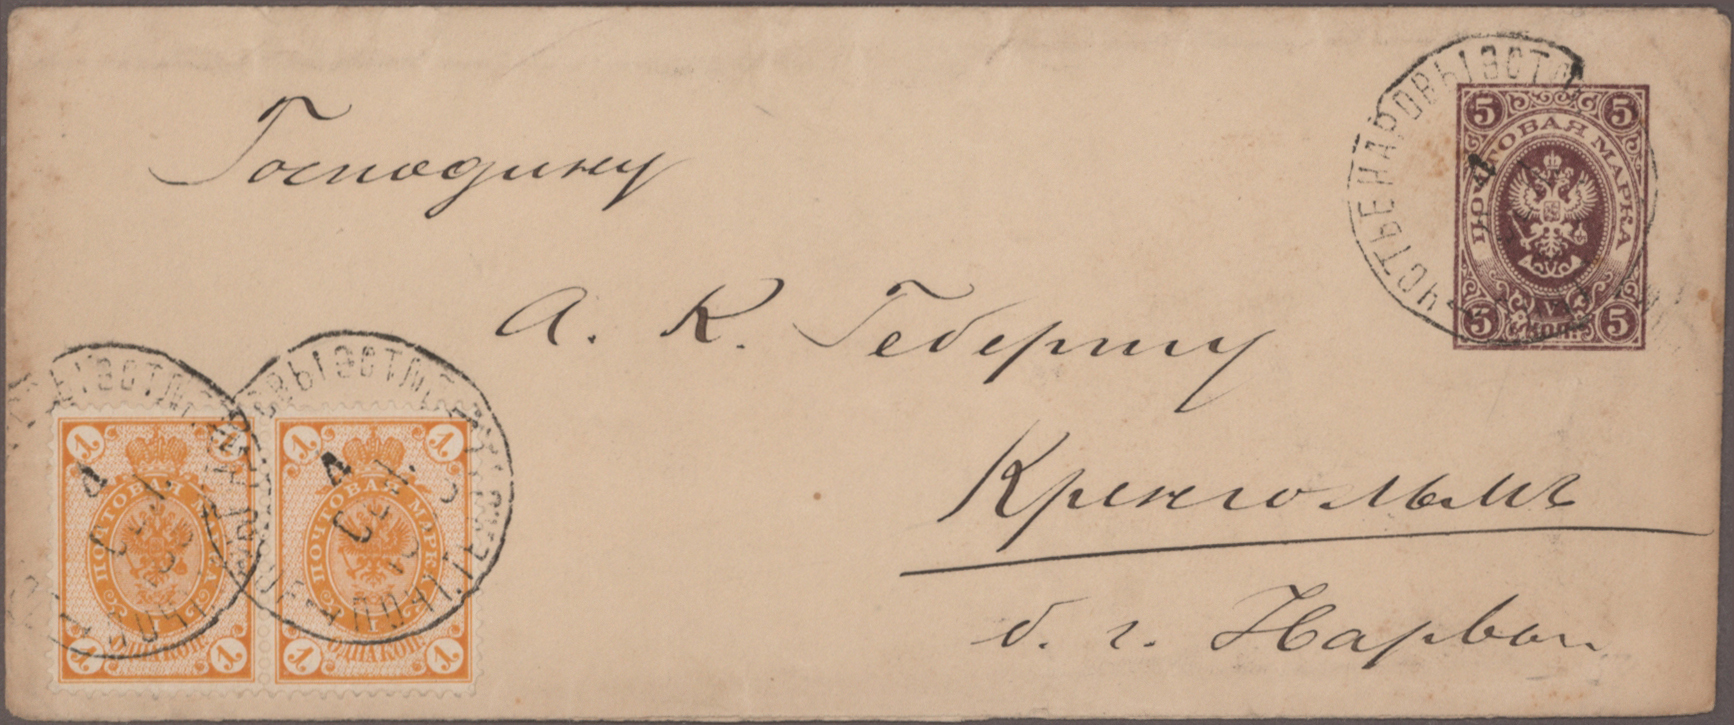 Господину
А. К. Геберишу
Кренгольмъ
б. г. Нарвы
5 5
ПОЧТОВАЯ МАРКА
5 5
УСТЬЕ НАРОВЫ ЭСТЛ
4
1 1
ПОЧТОВАЯ МАРКА
ОДНА КОП.
1 1
1 1
ПОЧТОВАЯ МАРКА
ОДНА КОП.
1 1
4
4